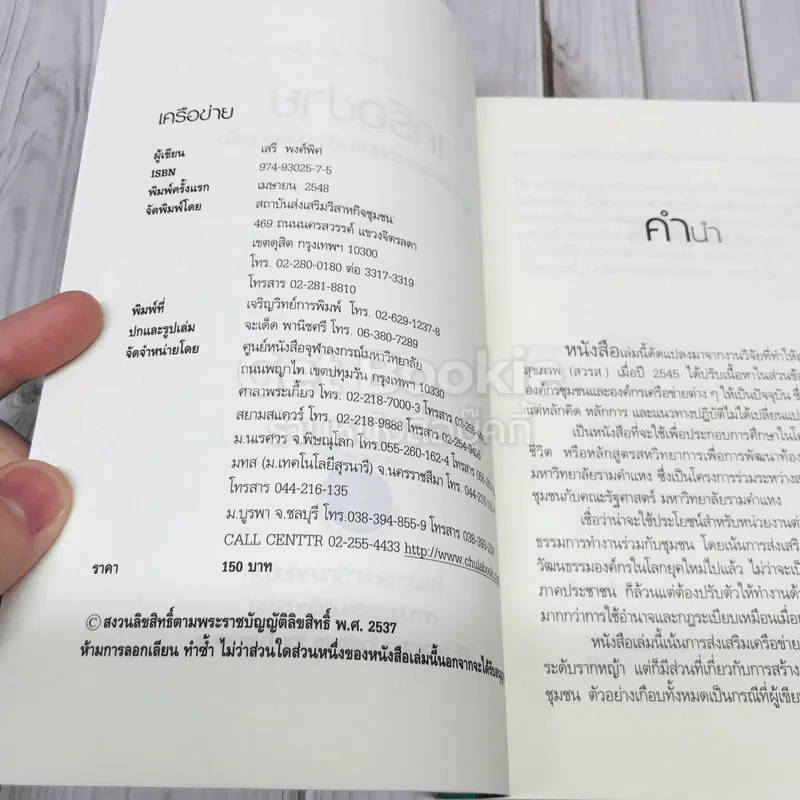 เครือข่าย
ผู้เขียน เสรี พงศ์พิศ
ISBN 974-93025-7-5
พิมพ์ครั้งแรก เมษายน 2548
จัดพิมพ์โดย สถาบันส่งเสริมวิสาหกิจชุมชน
469 ถนนนครสวรรค์ แขวงจิตรลดา
เขตดุสิต กรุงเทพฯ 10300
โทร. 02-280-0180 ต่อ 3317-3319
โทรสาร 02-281-8810
พิมพ์ที่ เจริญวิทย์การพิมพ์ โทร. 02-629-1237-8
ปกและรูปเล่ม จะเด็ด พานิชศรี โทร. 06-380-7289
จัดจำหน่ายโดย ศูนย์หนังสือจุฬาลงกรณ์มหาวิทยาลัย
ถนนพญาไท เขตปทุมวัน กรุงเทพฯ 10330
ศาลาพระเกี้ยว โทร. 02-218-7000-3 โทรสาร 02-255-
สยามสแควร์ โทร. 02-218-9888 โทรสาร 02-254-
ม.นเรศวร จ.พิษณุโลก โทร.055-260-162-4 โทรสาร
มทส (ม.เทคโนโลยีสุรนารี) จ.นครราชสีมา โทร.
โทรสาร 044-216-135
ม.บูรพา จ.ชลบุรี โทร.038-394-855-9 โทรสาร 038-393-
CALL CENTTR 02-255-4433 http://www.chulabook.
ราคา 150 บาท
© สงวนลิขสิทธิ์ตามพระราชบัญญัติลิขสิทธิ์ พ.ศ. 2537
ห้ามการลอกเลียน ทำซ้ำ ไม่ว่าส่วนใดส่วนหนึ่งของหนังสือเล่มนี้นอกจากจะได้รับ
คำนำ
หนังสือเล่มนี้ดัดแปลงมาจากงานวิจัยที่ทำให้
สุขภาพ (สวรส.) เมื่อปี 2545 ได้ปรับเนื้อหาในส่วนข้อ
องค์กรชุมชนและองค์กรเครือข่ายต่าง ๆ ให้เป็นปัจจุบัน ซึ่
แต่หลักคิด หลักการ และแนวทางปฏิบัติไม่ได้เปลี่ยนแปล
เป็นหนังสือที่จะใช้เพื่อประกอบการศึกษาในโ
ชีวิต หรือหลักสูตรสหวิทยาการเพื่อการพัฒนาท้อง
มหาวิทยาลัยรามคำแหง ซึ่งเป็นโครงการร่วมระหว่างส
ชุมชนกับคณะรัฐศาสตร์ มหาวิทยาลัยรามคำแหง
เชื่อว่าน่าจะใช้ประโยชน์สำหรับหน่วยงานต่
ธรรมการทำงานร่วมกับชุมชน โดยเน้นการส่งเสริ
วัฒนธรรมองค์กรในโลกยุคใหม่ไปแล้ว ไม่ว่าจะเป็
ภาคประชาชน ก็ล้วนแต่ต้องปรับตัวให้ทำงานด้ว
มากกว่าการใช้อำนาจและกฎระเบียบเหมือนเมื่อ
หนังสือเล่มนี้เน้นการส่งเสริมเครือข่าย
ระดับรากหญ้า แต่ก็มีส่วนที่เกี่ยวกับการสร้าง
ชุมชน ตัวอย่างเกือบทั้งหมดเป็นกรณีที่ผู้เขีย
Get Bookie
ร้านหนังสือบุ๊คกี้